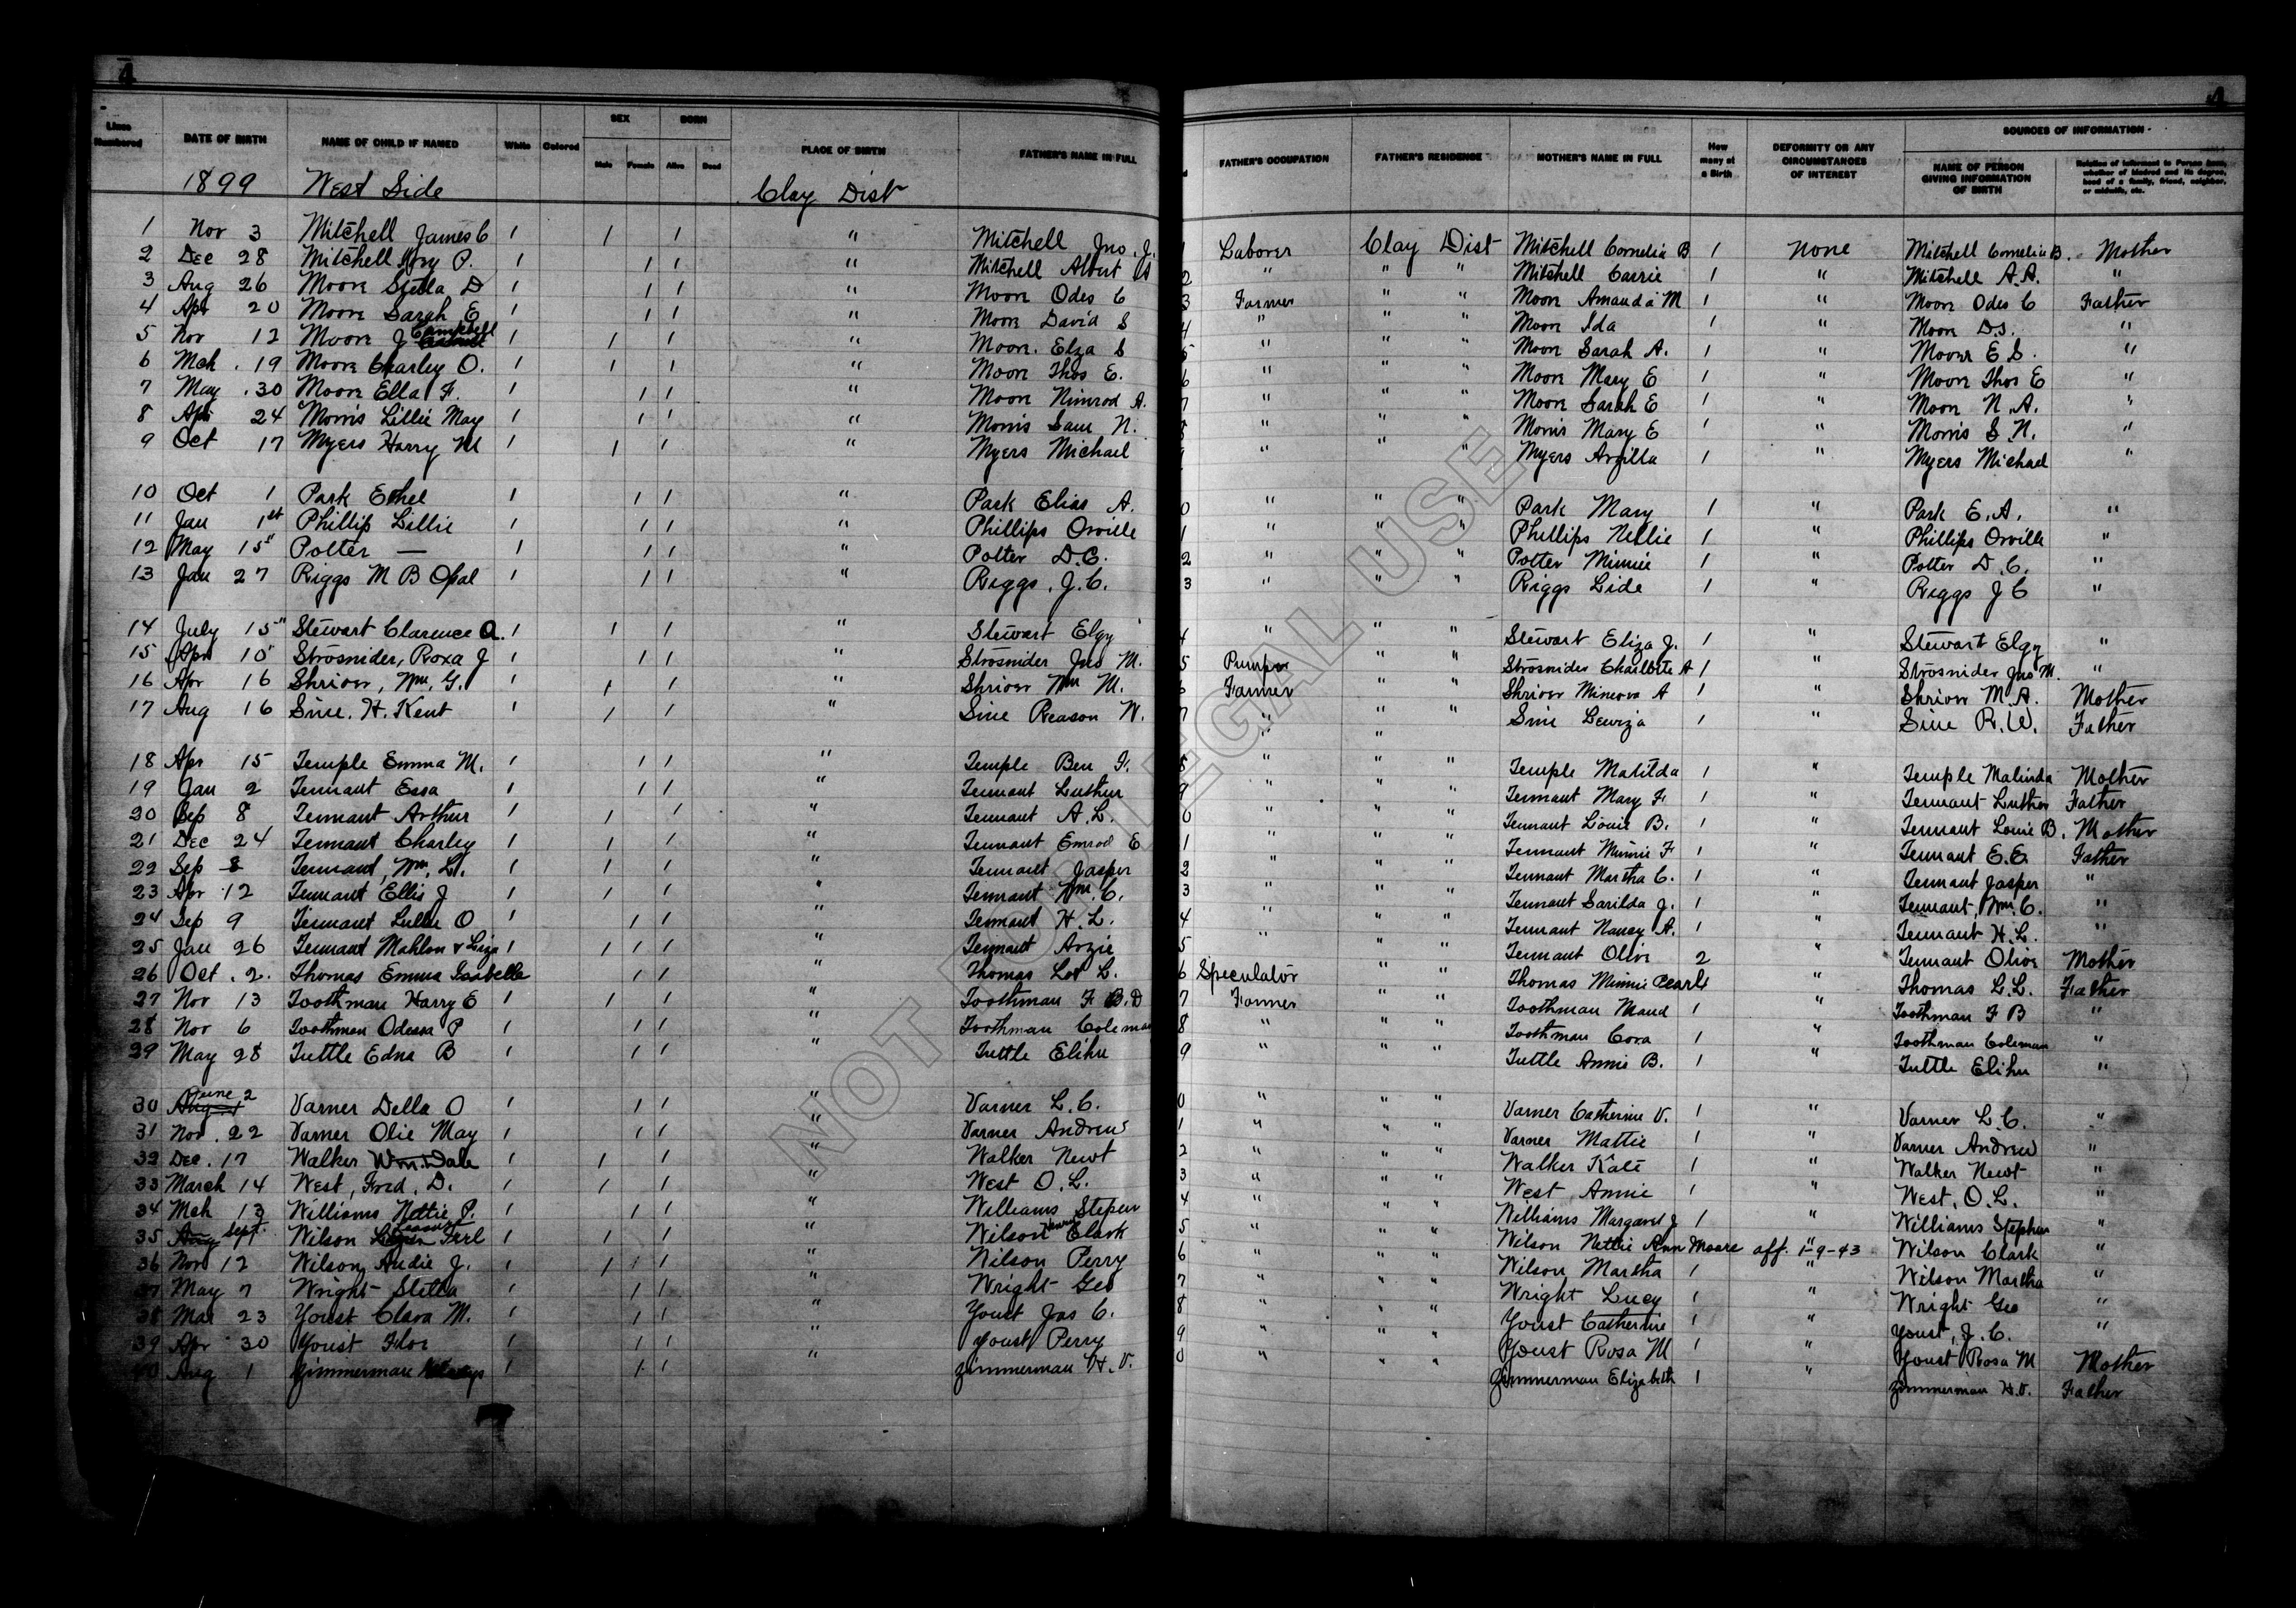 4
4
Lines Numbered DATE OF BIRTH NAME OF CHILD IF NAMED White Colored SEX Male Female BORN Alive Dead PLACE OF BIRTH FATHER'S NAME IN FULL FATHER'S OCCUPATION FATHER'S RESIDENCE MOTHER'S NAME IN FULL How many at a Birth DEFORMITY OR ANY CIRCUMSTANCES OF INTEREST SOURCES OF INFORMATION NAME OF PERSON GIVING INFORMATION OF BIRTH Relation of Informant to Person born, whether of kindred and its degree, head of a family, friend, neighbor, or midwife, etc.
1899 West Side Clay Dist
1 Nov 3 Mitchell James C 1 1 1 " Mitchell Jno. J. 1 Laborer Clay Dist Mitchell Cornelia B 1 None Mitchell Cornelia B. Mother
2 Dec 28 Mitchell P. 1 1 1 " Mitchell Albert A 2 " " " Mitchell Carrie 1 " Mitchell A.A. "
3 Aug 26 Moon Stella D 1 1 1 " Moon Odes C 3 Farmer " " Moon Amanda M 1 " Moon Odes C Father
4 Apr 20 Moon Sarah E 1 1 1 " Moon David S 4 " " " Moon Ida 1 " Moon D.S. "
5 Nov 12 Moon J Campbell 1 1 1 " Moon. Elza S 5 " " " Moon Sarah A. 1 " Moon E S. "
6 Mch. 19 Moon Charley O. 1 1 1 " Moon Thos E. 6 " " " Moon Mary E 1 " Moon Thos E "
7 May .30 Moon Ella F. 1 1 1 " Moon Nimrod A. 7 " " " Moon Sarah E 1 " Moon N.A. "
8 Apr 24 Morris Lillie May 1 1 1 " Morris Sam N. 8 " " " Morris Mary E 1 " Morris S.N. "
9 Oct 17 Myers Harry M 1 1 1 " Myers Michael 9 " " Myers Arzilla 1 " Myers Michael "
10 Oct 1 Park Ethel 1 1 1 " Park Elias A. 0 " " " Park Mary 1 " Park E.A. "
11 Jan 1st Phillip Lillie 1 1 1 " Phillips Orville 1 " " " Phillips Nellie 1 " Phillips Orville "
12 May 15" Potter — 1 1 1 " Potter D.C. 2 " " " Potter Minnie 1 " Potter D.C. "
13 Jan 27 Riggs M B Opal 1 1 1 " Riggs, J.C. 3 " " " Riggs Lide 1 " Riggs J C "
14 July 15" Stewart Clarence A. 1 1 1 " Stewart Elgy 4 " " " Stewart Eliza J. 1 " Stewart Elgy "
15 Apr 10" Strosnider, Roxa J 1 1 1 " Strosnider Jno M. 5 Pumper " " Strosnider Charlotte A 1 " Strosnider Jno M. "
16 Apr 16 Shriver, Wm. G. 1 1 1 " Shriver Wm M. 6 Farmer " " Shriver Minerva A 1 " Shriver M.A. Mother
17 Aug 16 Sine. H. Kent 1 1 1 " Sine Reason W. 7 " " " Sine Lewiza 1 " Sine R.W. Father
18 Apr 15 Temple Emma M. 1 1 1 " Temple Ben F. 8 " " " Temple Matilda 1 " Temple Malinda Mother
19 Jan 2 Tennant Essa 1 1 1 " Tennant Luther 9 " " " Tennant Mary F 1 " Tennant Luther Father
20 Sep 8 Tennant Arthur 1 1 1 " Tennant A.L. 0 " " " Tennant Louie B. 1 " Tennant Louie B. Mother
21 Dec 24 Tennant Charley 1 1 1 " Tennant Emrod E 1 " " " Tennant Minnie F 1 " Tennant E.E. Father
22 Sep 8 Tennant, Wm. L. 1 1 1 " Tennant Jasper 2 " " " Tennant Martha C. 1 " Tennant Jasper "
23 Apr 12 Tennant Ellis J 1 1 1 " Tennant Wm. C. 3 " " " Tennant Sarilda J. 1 " Tennant, Wm. C. "
24 Sep 9 Tennant Lullie O 1 1 1 " Tennant H.L. 4 " " " Tennant Nancy A. 1 " Tennant H.L. "
25 Jan 26 Tennant Mahlon & Liza 1 1 1 1 " Tennant Arzie 5 " " " Tennant Olive 2 " Tennant Olive Mother
26 Oct. 2. Thomas Emma Isabella 1 1 " Thomas Lot L. 6 Speculator " " Thomas Minnie Pearl 1 " Thomas L.L. Father
27 Nov 13 Toothman Harry E 1 1 1 " Toothman F B. D 7 Farmer " " Toothman Maud 1 " Toothman F B "
28 Nov 6 Toothman Odessa P 1 1 1 " Toothman Coleman 8 " " " Toothman Cora 1 " Toothman Coleman "
29 May 28 Tuttle Edna B 1 1 1 " Tuttle Elihu 9 " " " Tuttle Annie B. 1 " Tuttle Elihu "
30 June 2 Varner Della O 1 1 1 " Varner L.C. 0 " " " Varner Catherine V. 1 " Varner L.C. "
31 Nov. 22 Varner Olie May 1 1 1 " Varner Andrew 1 " " " Varner Mattie 1 " Varner Andrew "
32 Dec. 17 Walker Wm. Dale 1 1 1 " Walker Newt 2 " " " Walker Kate 1 " Walker Newt "
33 March 14 West, Fred. D. 1 1 1 " West O.L. 3 " " " West, Annie 1 " West, O.L. "
34 Mch 13 Williams Nettie P. 1 1 1 " Williams Stepen 4 " " " Williams Margaret J 1 " Williams Stephen "
35 Sept. Wilson 1 1 1 " Wilson Clark 5 " " " Wilson Nettie Ann Moore aff. 1-9-43 Wilson Clark "
36 Nov 12 Wilson, Audie J. 1 1 1 " Wilson Perry 6 " " " Wilson Martha 1 " Wilson Martha "
37 May 7 Wright Stella 1 1 1 " Wright Geo 7 " " " Wright Lucy 1 " Wright Geo "
38 Mar 23 Youst Clara M. 1 1 1 " Youst Jas C. 8 " " " Youst Catherine 1 " Youst, J.C. "
39 Apr 30 Youst Flor 1 1 1 " Youst Perry 9 " " " Youst Rosa M 1 " Youst Rosa M Mother
40 Aug 1 Zimmerman 1 1 1 " Zimmerman H.V. 0 " " " Zimmerman Elizabeth 1 " Zimmerman H.V. Father
NOT FOR LEGAL USE